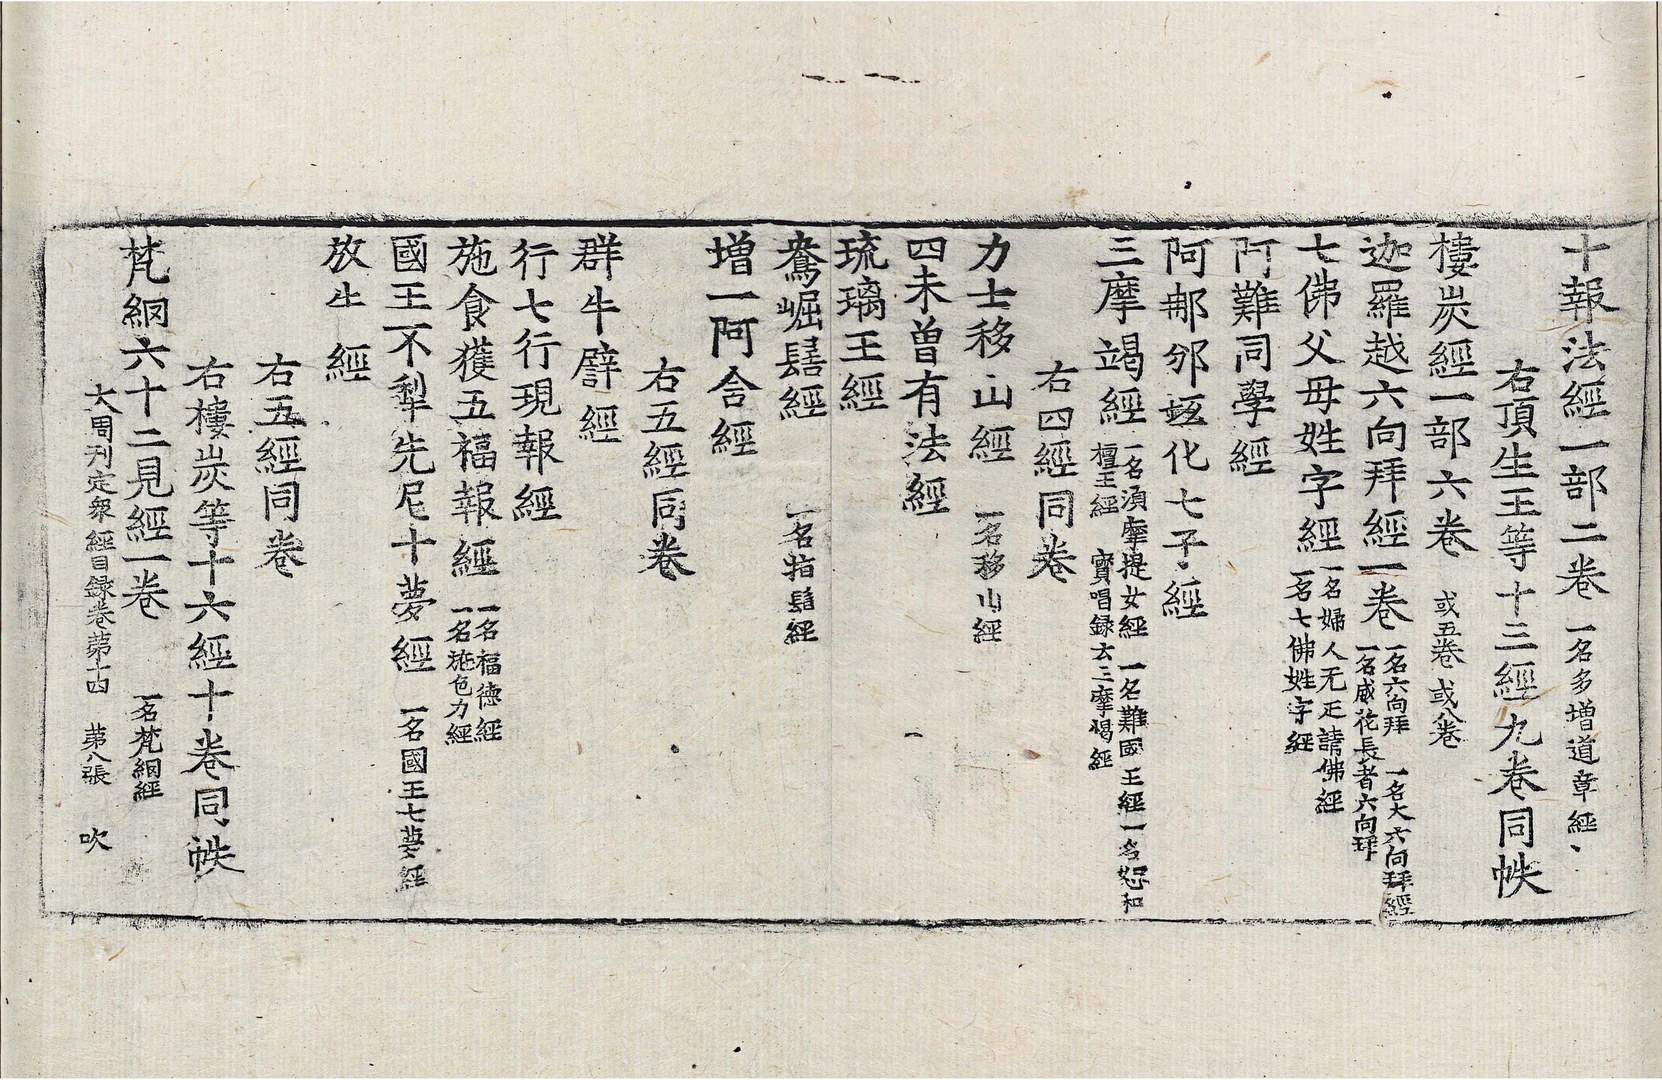 十報法經一部二卷 一名多増道章經
右頂生王等十三經九卷同帙
樓炭經一部六卷 或五卷或八卷
迦羅越六向拜經一卷 一名六向拜 一名大六向拜經
一名威花長者六向拜
七佛父母姓字經 一名婦人无延請佛經
一名七佛姓字經
阿難同學經
阿那邠坻化七子經
三摩竭經 一名須摩提女經 一名難國王經 一名恕和
檀王經 寶唱録云三摩竭經
右四經同卷
力士移山經 一名移山經
四未曽有法經
琉璃王經
鴦崛髻經 一名指髻經
増一阿含經
右五經同卷
群牛譬經
行七行現報經
施食獲五福報經 一名福德經
一名施色力經
國王不犁先尼十夢經 一名國王七夢經
放牛經
右五經同卷
右樓炭等十六經十卷同帙
梵網六十二見經一卷 一名梵網經
大周刊定衆經目録卷第十四 第八張 吹